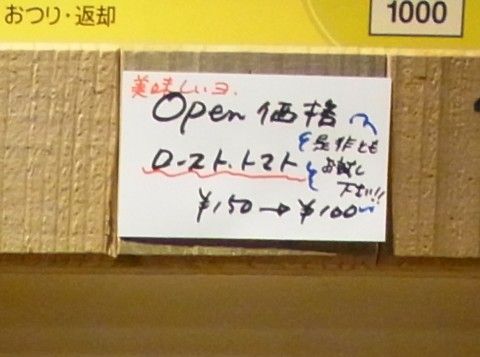 おつり・返却
1000
美味しいヨ.
Open 価格
是非とも
ロースト.トマト
お試し
下さい!!
¥150→¥100